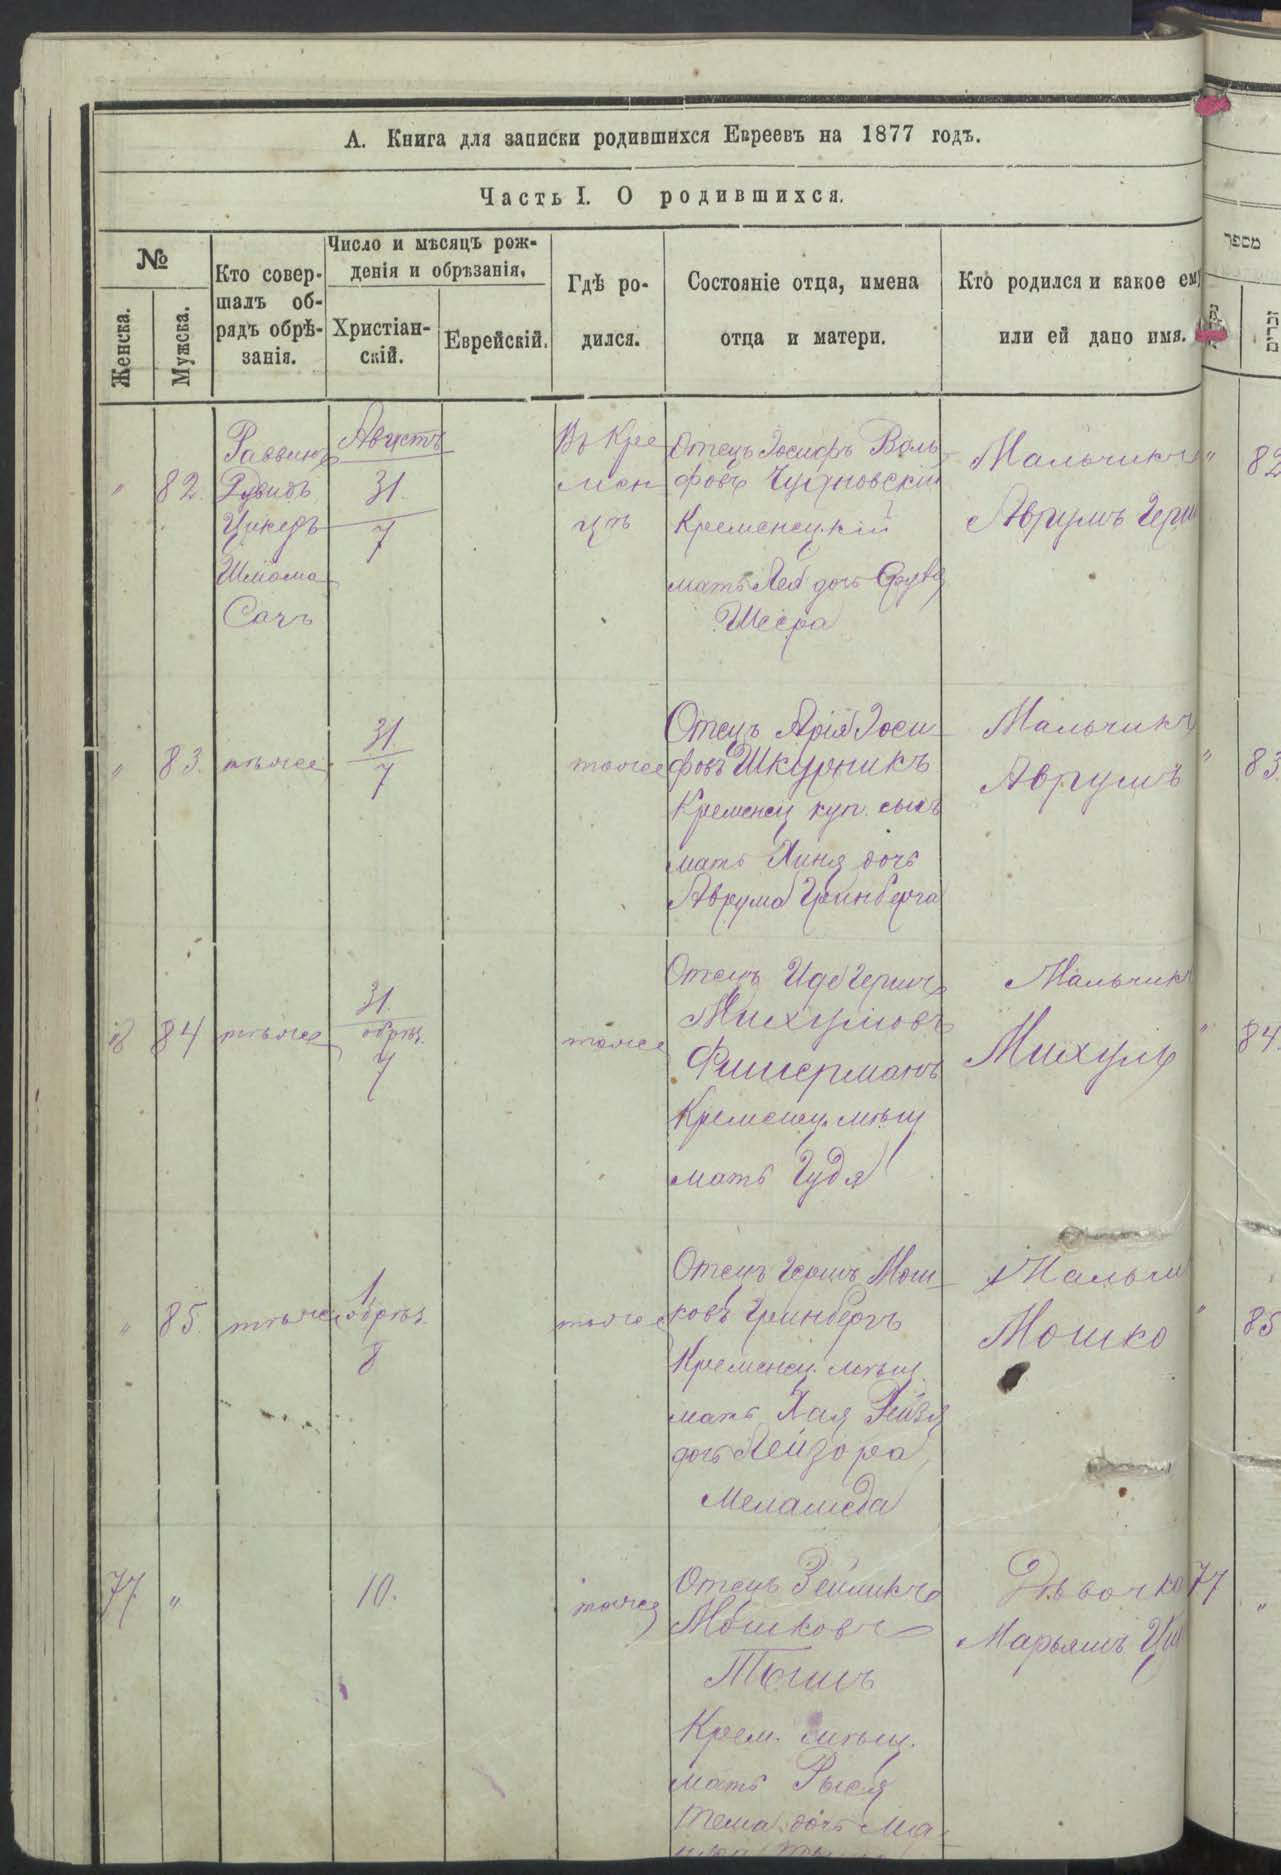 А. Книга для записки родившихся Евреевъ на 1877 годъ.
Часть I. О родившихся.
№
Женска.
Мужска.
Кто совер-
шалъ об-
рядъ обрѣ-
занія.
Число и мѣсяцъ рож-
денія и обрѣзанія.
Христіан-
скій.
Еврейскій.
Гдѣ ро-
дился.
Состояніе отца, имена
отца и матери.
Кто родился и какое ему
или ей дано имя.
מספר
זכרים
" 82.
Раввинъ
Августъ
31.
7
Въ Кре
мен
цѣ
Отецъ Іосифъ Воль
фовъ
Кременецкій
мать Лея дочь
Шеера
Мальчикъ
Аврумъ Герш
" 82
" 83.
тѣже
31.
7
тоже
Отецъ Арія Іоси
фовъ Шкурникъ
Кременец куп. сынъ
мать Хиня дочь
Аврума Гринберга
Мальчикъ
Аврумъ
" 83
84
тѣже
31.
обрѣз.
7
тоже
Отецъ Ицъ Гершъ
Михулювъ
Фишерманъ
Кременец. мѣщ
мать Гудя
Мальчикъ
Михуль
" 84
" 85.
тѣже
1
обрѣз.
8
тоже
Отецъ Гершъ Мош
ковъ Гринбергъ
Кременец. мѣщ.
мать Хая Рейзя
дочь Лейзора
Меламеда
Мальчи
Мошко
" 85
77 "
10.
тоже
Отецъ Зейликъ
Мошковъ
Крем. мѣщ.
мать Рыся
дочь Ма-
Дѣвочка
Марьямъ
77 "